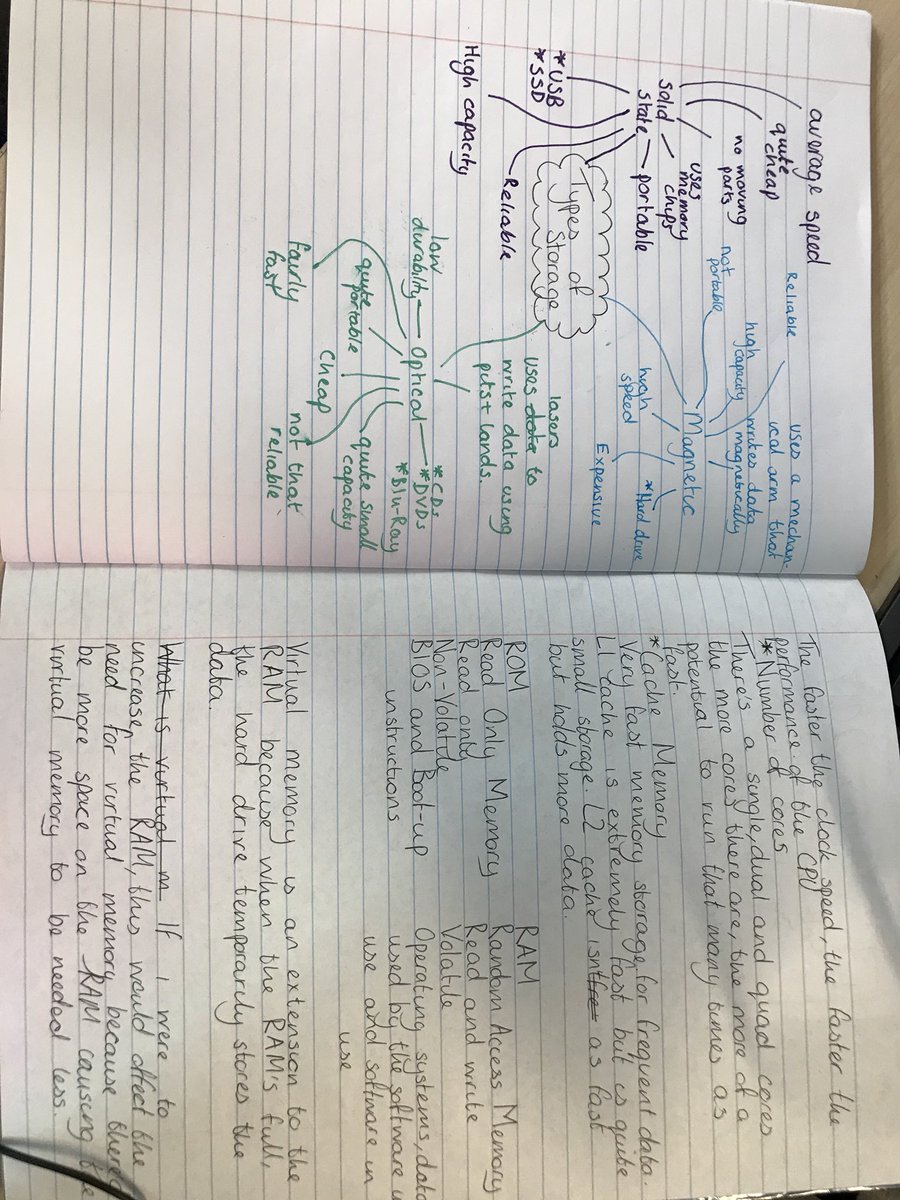 average speed
quite
cheap
no moving
parts
uses
memory
chips
solid
state
portable
*USB
*SSD
High capacity
Reliable
Types of
Storage
Reliable
uses a mechan-
ical arm that
writes data
magnetically
high
capacity
not
portable
Magnetic
*Hard drive
high
speed
Expensive
lasers
uses data to
write data using
pits + lands.
Optical
*CDs
*DVDs
*Blu-Ray
low
durability
quite
portable
quite small
capacity
Cheap
fairly
fast
not that
reliable
The faster the clock speed, the faster the
performance of the CPU
*Number of cores
There's a single, dual and quad cores
the more cores there are, the more of a
potential to run that many times as
fast.
*Cache Memory
Very fast memory storage for frequent data.
L1 cache is extremely fast but is quite
small storage. L2 cache isn't as fast
but holds more data.
ROM RAM
Read Only Memory Random Access Memory
Read only Read and write
Non-Volatile Volatile
BIOS and Boot-up Operating systems, data
instructions used by the software in
use and software in
use
Virtual memory is an extension to the
RAM because when the RAM's full,
the hard drive temporarily stores the
data.
What is virtual m If I were to
increase the RAM, this would affect the
need for virtual memory because there'd
be more space on the RAM causing the
virtual memory to be needed less.